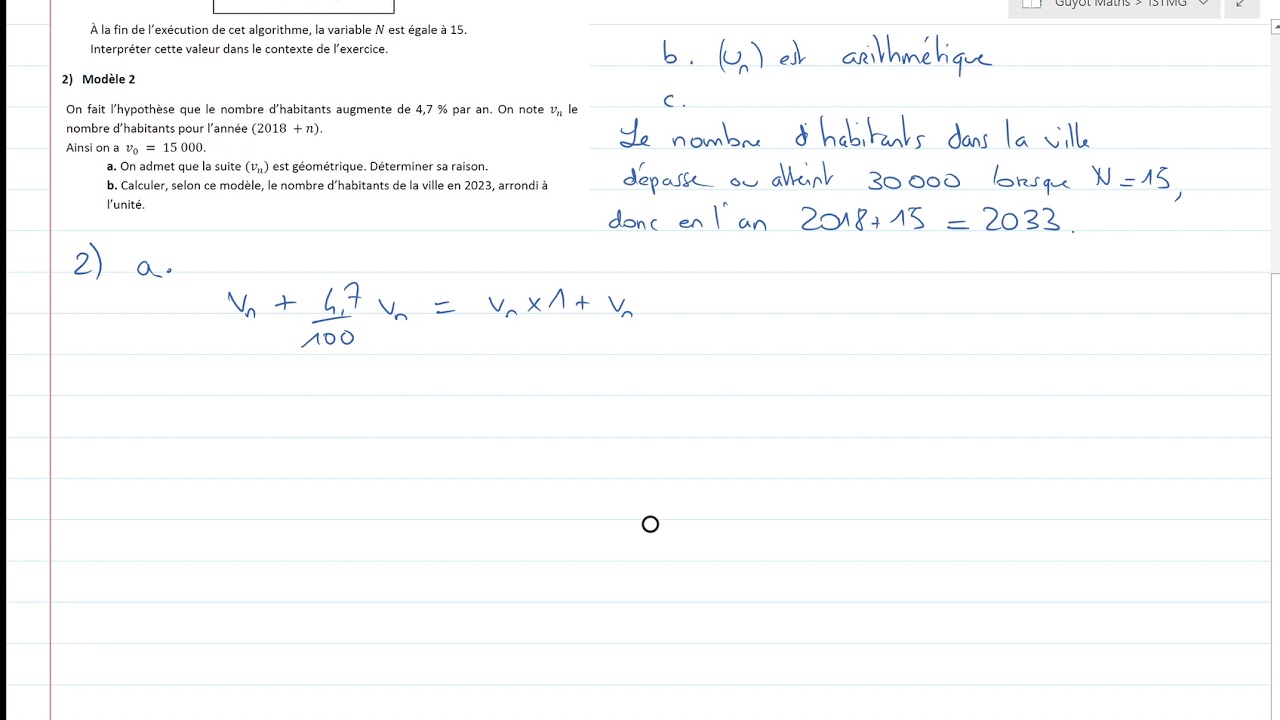 Guyot Maths > 1STMG
À la fin de l'exécution de cet algorithme, la variable N est égale à 15.
Interpréter cette valeur dans le contexte de l'exercice.
2) Modèle 2
On fait l'hypothèse que le nombre d'habitants augmente de 4,7 % par an. On note vₙ le
nombre d'habitants pour l'année (2018 + n).
Ainsi on a v₀ = 15 000.
a. On admet que la suite (vₙ) est géométrique. Déterminer sa raison.
b. Calculer, selon ce modèle, le nombre d'habitants de la ville en 2023, arrondi à
l'unité.
b. (uₙ) est arithmétique
c.
Le nombre d'habitants dans la ville
dépasse ou atteint 30000 lorsque N = 15,
donc en l'an 2018 + 15 = 2033.
2) a.
vₙ + 4,7/100 vₙ = vₙ × 1 + vₙ